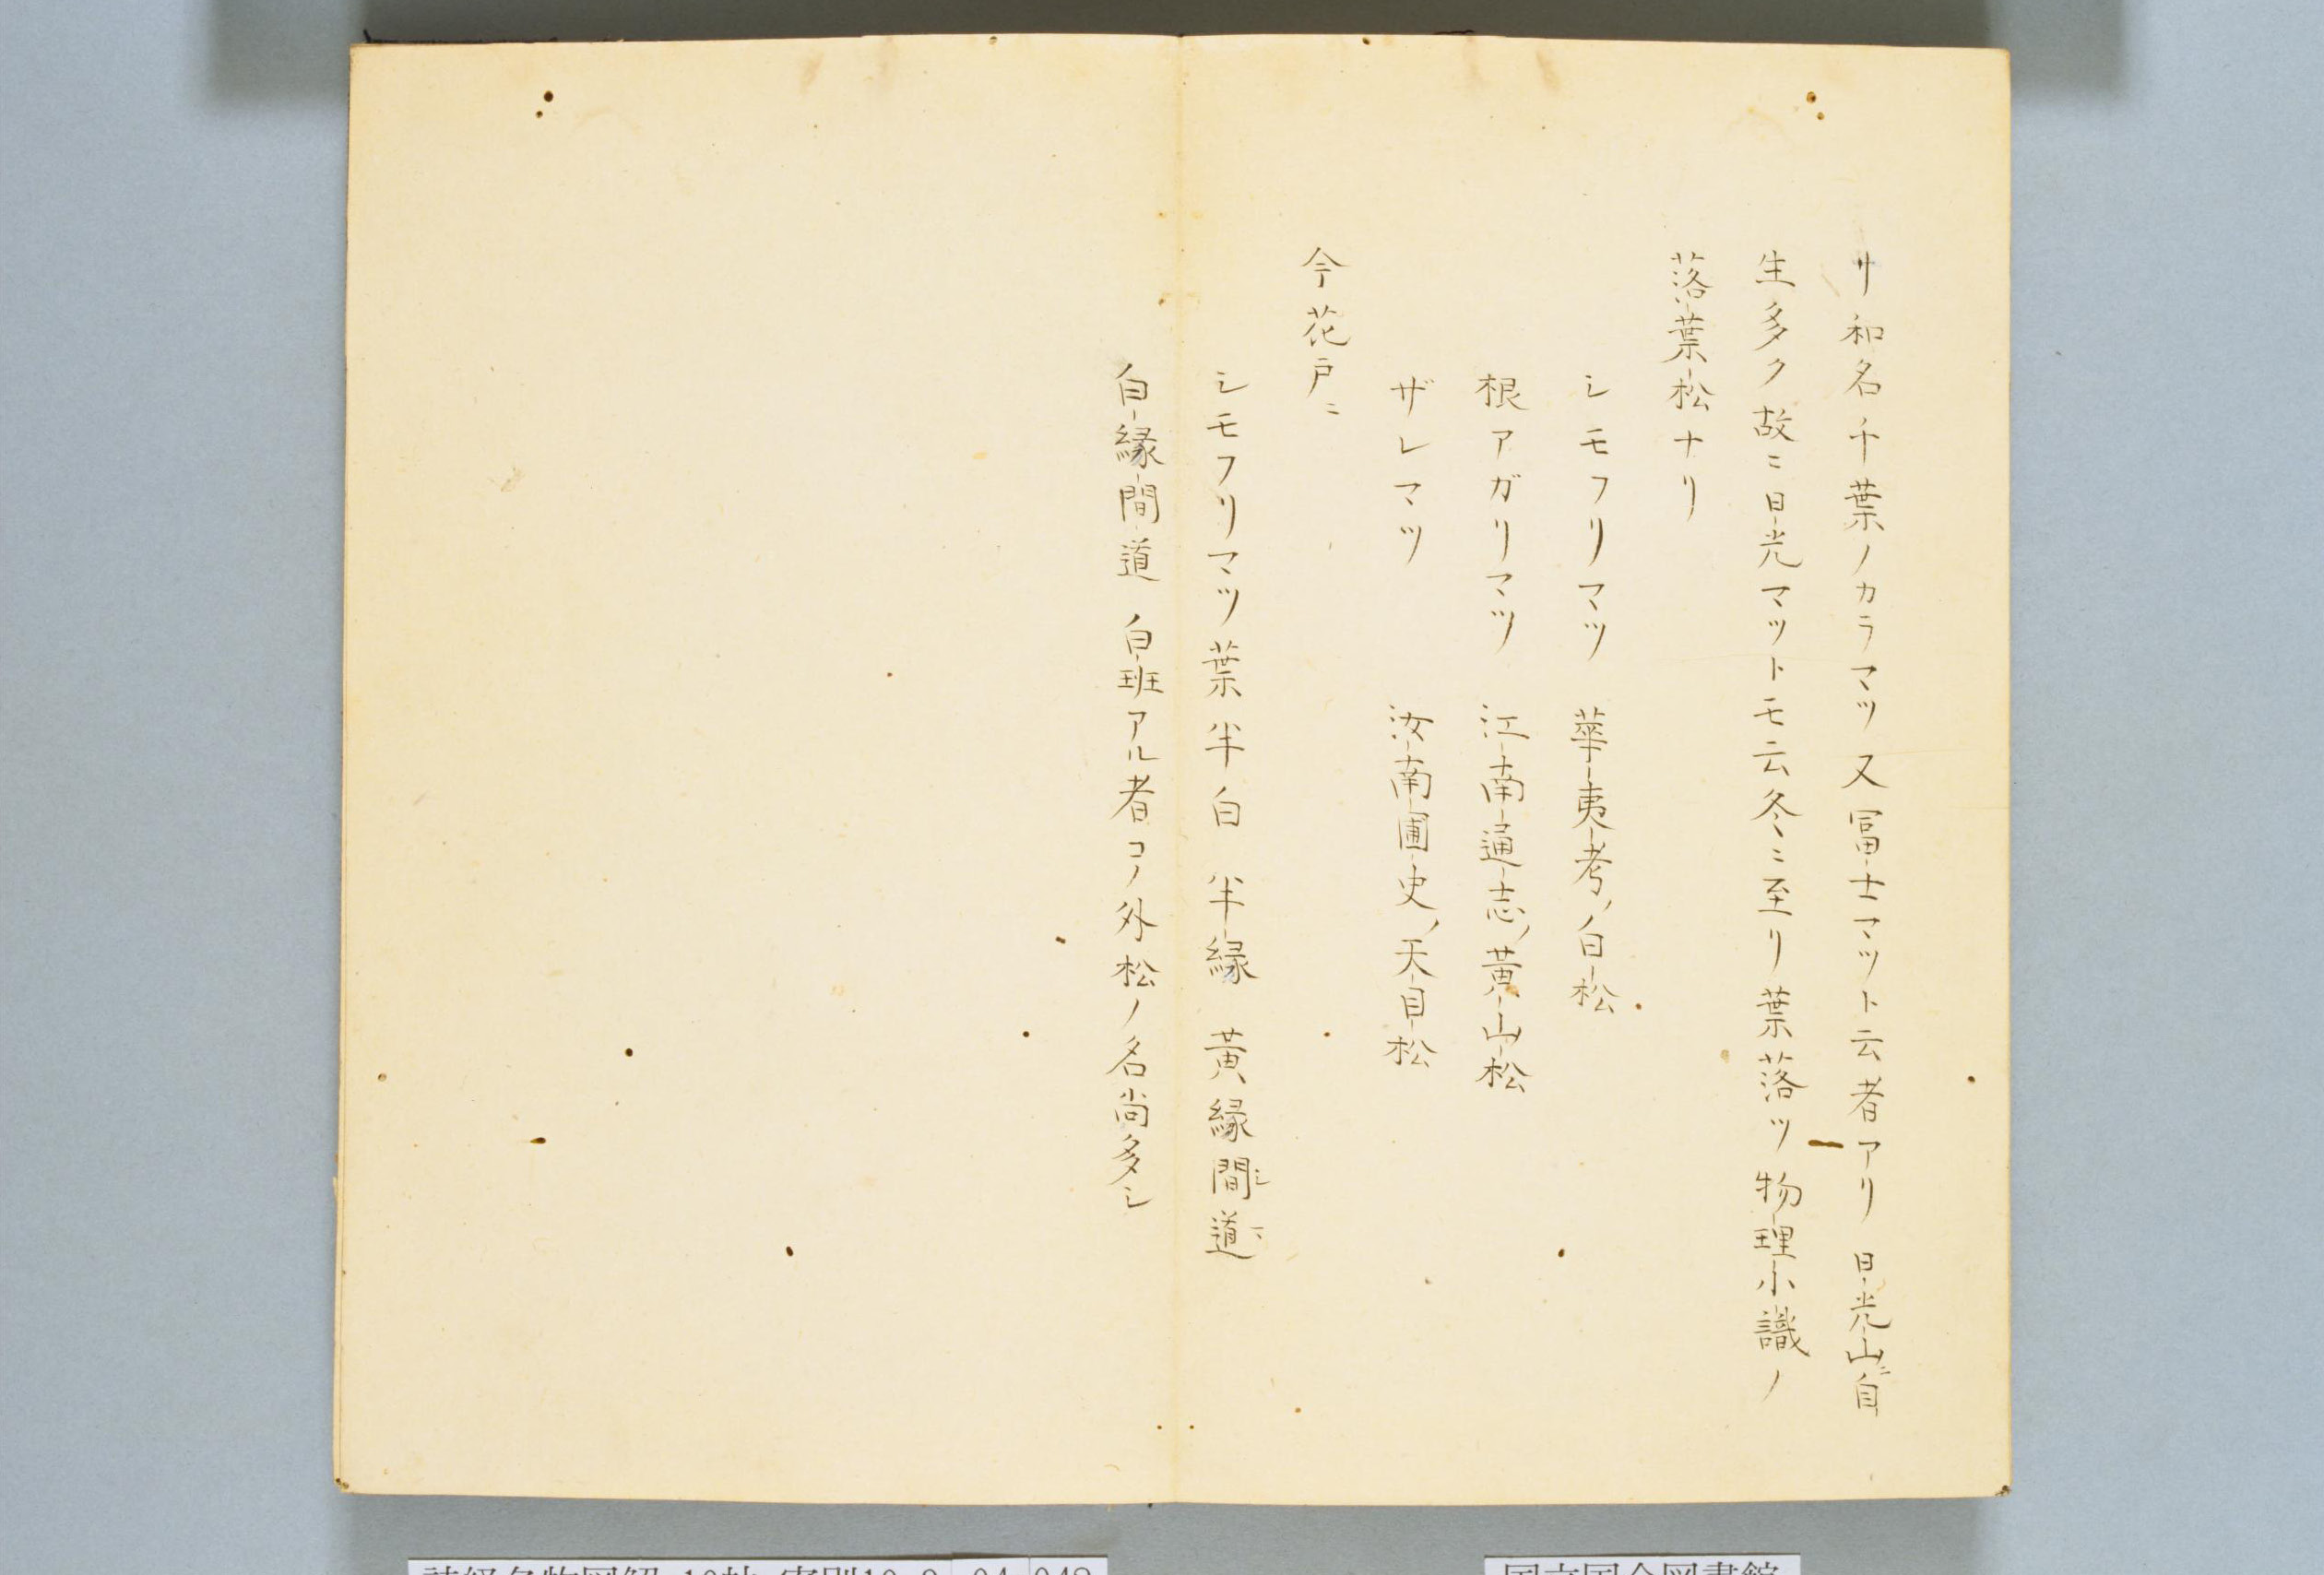 リ和名千葉ノカラマツ又冨士マツト云者アリ日光山ニ自
生多ク故ニ日光マツトモ云冬ニ至リ葉落ツ物理小識ノ
落葉松ナリ
シモフリマツ 華夷考ノ白松
根アガリマツ 江南通志ノ黄山松
ザレマツ 汝南圃史ノ天目松
今花戸ニ
シモフリマツ葉半白 半縁 黄縁間道シマ
白縁間道 白班アル者コノ外松ノ名尚多シ